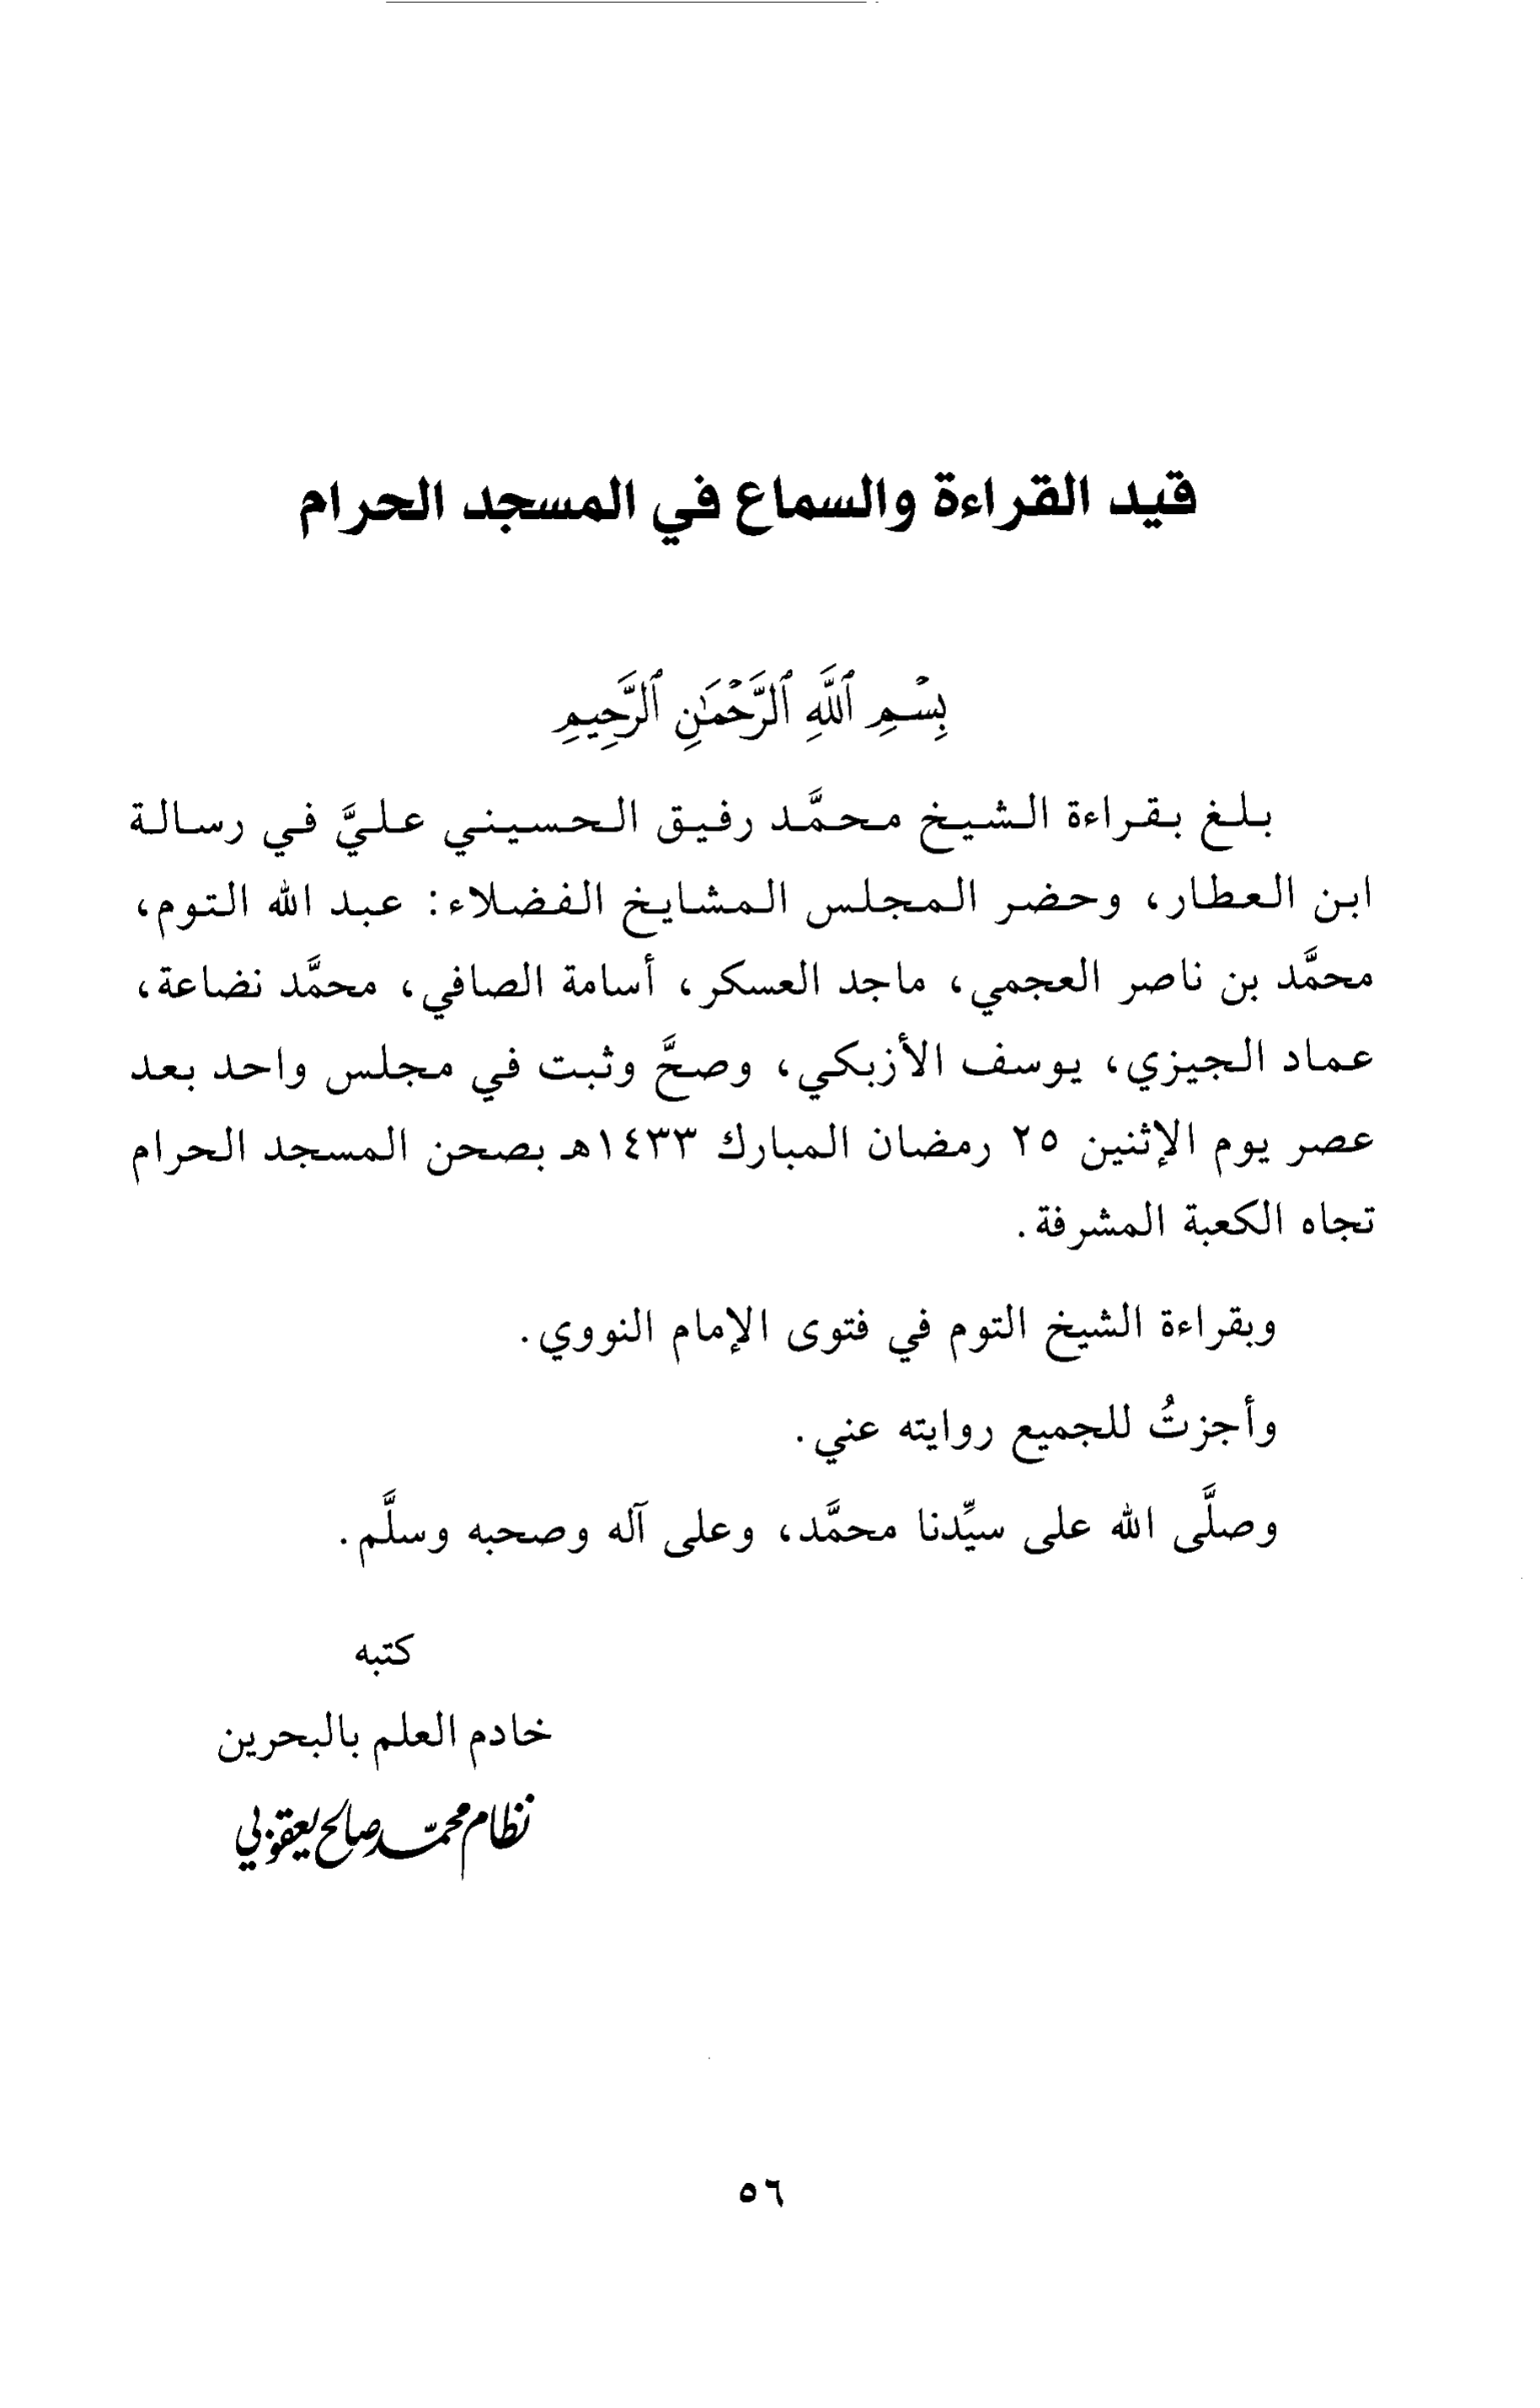 قيد القراءة والسماع في المسجد الحرام
بِسْمِ ٱللَّهِ ٱلرَّحْمَٰنِ ٱلرَّحِيمِ
بلغ بقراءة الشيخ محمَّد رفيق الحسيني عليَّ في رسالة
ابن العطار، وحضر المجلس المشايخ الفضلاء: عبد الله التوم،
محمَّد بن ناصر العجمي، ماجد العسكر، أسامة الصافي، محمَّد نضاعة،
عماد الجيزي، يوسف الأزبكي، وصحَّ وثبت في مجلس واحد بعد
عصر يوم الإثنين ٢٥ رمضان المبارك ١٤٣٣هـ بصحن المسجد الحرام
تجاه الكعبة المشرفة.
وبقراءة الشيخ التوم في فتوى الإمام النووي.
وأجزتُ للجميع روايته عني.
وصلَّى الله على سيِّدنا محمَّد، وعلى آله وصحبه وسلَّم.
كتبه
خادم العلم بالبحرين
نظام محمّد صالح يعقوبي
٥٦